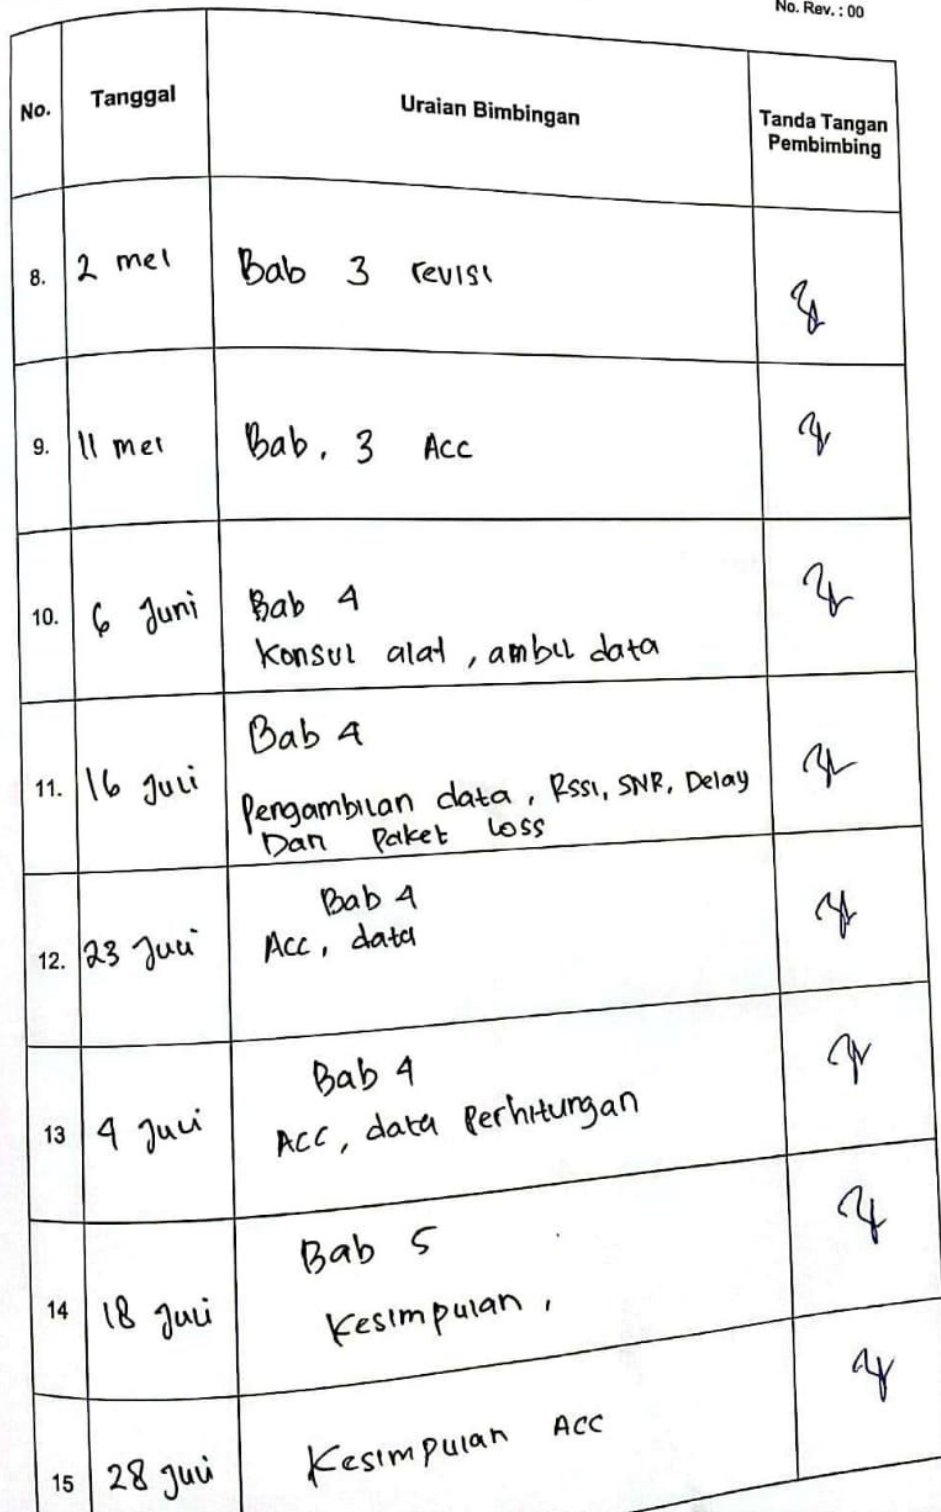 No. Rev. : 00
No. Tanggal Uraian Bimbingan Tanda Tangan
Pembimbing
8. 2 mei Bab 3 revisi
9. 11 mei Bab. 3 Acc
10. 6 Juni Bab 4
Konsul alat, ambil data
11. 16 Juli Bab 4
Pengambilan data, RSSI, SNR, Delay
Dan Paket loss
12. 23 Juli Bab 4
Acc, data
13 4 Juli Bab 4
ACC, data Perhitungan
14 18 Juli Bab 5
Kesimpulan,
15 28 Juli Kesimpulan Acc